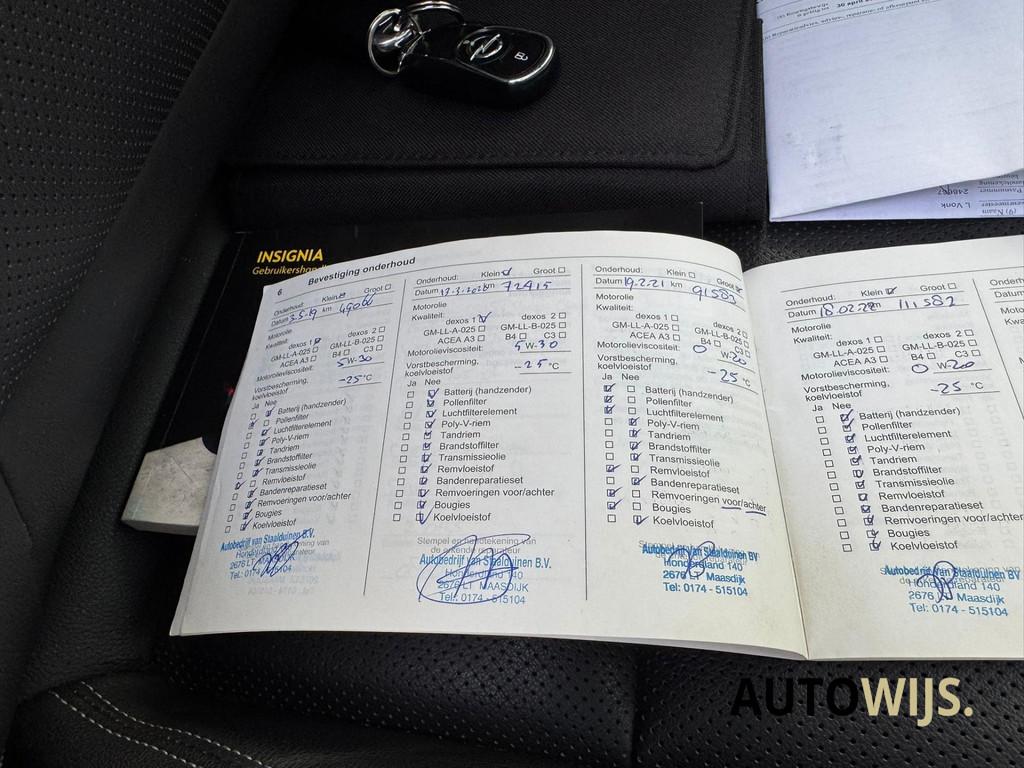 30 april
I. Vonk
(9) Naam
Pasnummer
INSIGNIA
6 Bevestiging onderhoud
Onderhoud: Klein Groot
Datum 3.5.19 km
Motorolie
Kwaliteit:
dexos 1 dexos 2
GM-LL-A-025 GM-LL-B-025
ACEA A3 B4 C3
Motorolieviscositeit: 5W-30
Vorstbescherming,
koelvloeistof -25 °C
Ja Nee
Batterij (handzender)
Pollenfilter
Luchtfilterelement
Poly-V-riem
Tandriem
Brandstoffilter
Transmissieolie
Remvloeistof
Bandenreparatieset
Remvoeringen voor/achter
Bougies
Koelvloeistof
Autobedrijf van Staalduinen B.V.
2676 LT MAASDIJK
Tel.: 0174 - 515104
Onderhoud: Klein Groot
Datum km 72415
Motorolie
Kwaliteit:
dexos 1 dexos 2
GM-LL-A-025 GM-LL-B-025
ACEA A3 B4 C3
Motorolieviscositeit: 5W-30
Vorstbescherming,
koelvloeistof -25 °C
Ja Nee
Batterij (handzender)
Pollenfilter
Luchtfilterelement
Poly-V-riem
Tandriem
Brandstoffilter
Transmissieolie
Remvloeistof
Bandenreparatieset
Remvoeringen voor/achter
Bougies
Koelvloeistof
Stempel en handtekening van
de erkende reparateur
Autobedrijf van Staalduinen B.V.
Honderdland 140
2676 LT MAASDIJK
Tel.: 0174 - 515104
Onderhoud: Klein Groot
Datum 19.2.21 km 91583
Motorolie
Kwaliteit:
dexos 1 dexos 2
GM-LL-A-025 GM-LL-B-025
ACEA A3 B4 C3
Motorolieviscositeit: 0 W-20
Vorstbescherming,
koelvloeistof -25 °C
Ja Nee
Batterij (handzender)
Pollenfilter
Luchtfilterelement
Poly-V-riem
Tandriem
Brandstoffilter
Transmissieolie
Remvloeistof
Bandenreparatieset
Remvoeringen voor/achter
Bougies
Koelvloeistof
Autobedrijf van Staalduinen BV
Honderdland 140
2676 LT Maasdijk
Tel: 0174 - 515104
Onderhoud: Klein Groot
Datum 18.02.22 km 111582
Motorolie
Kwaliteit:
dexos 1 dexos 2
GM-LL-A-025 GM-LL-B-025
ACEA A3 B4 C3
Motorolieviscositeit: 0 W-20
Vorstbescherming,
koelvloeistof -25 °C
Ja Nee
Batterij (handzender)
Pollenfilter
Luchtfilterelement
Poly-V-riem
Tandriem
Brandstoffilter
Transmissieolie
Remvloeistof
Bandenreparatieset
Remvoeringen voor/achter
Bougies
Koelvloeistof
Autobedrijf van Staalduinen BV
Honderdland 140
2676 LT Maasdijk
Tel: 0174 - 515104
AUTOWIJS.